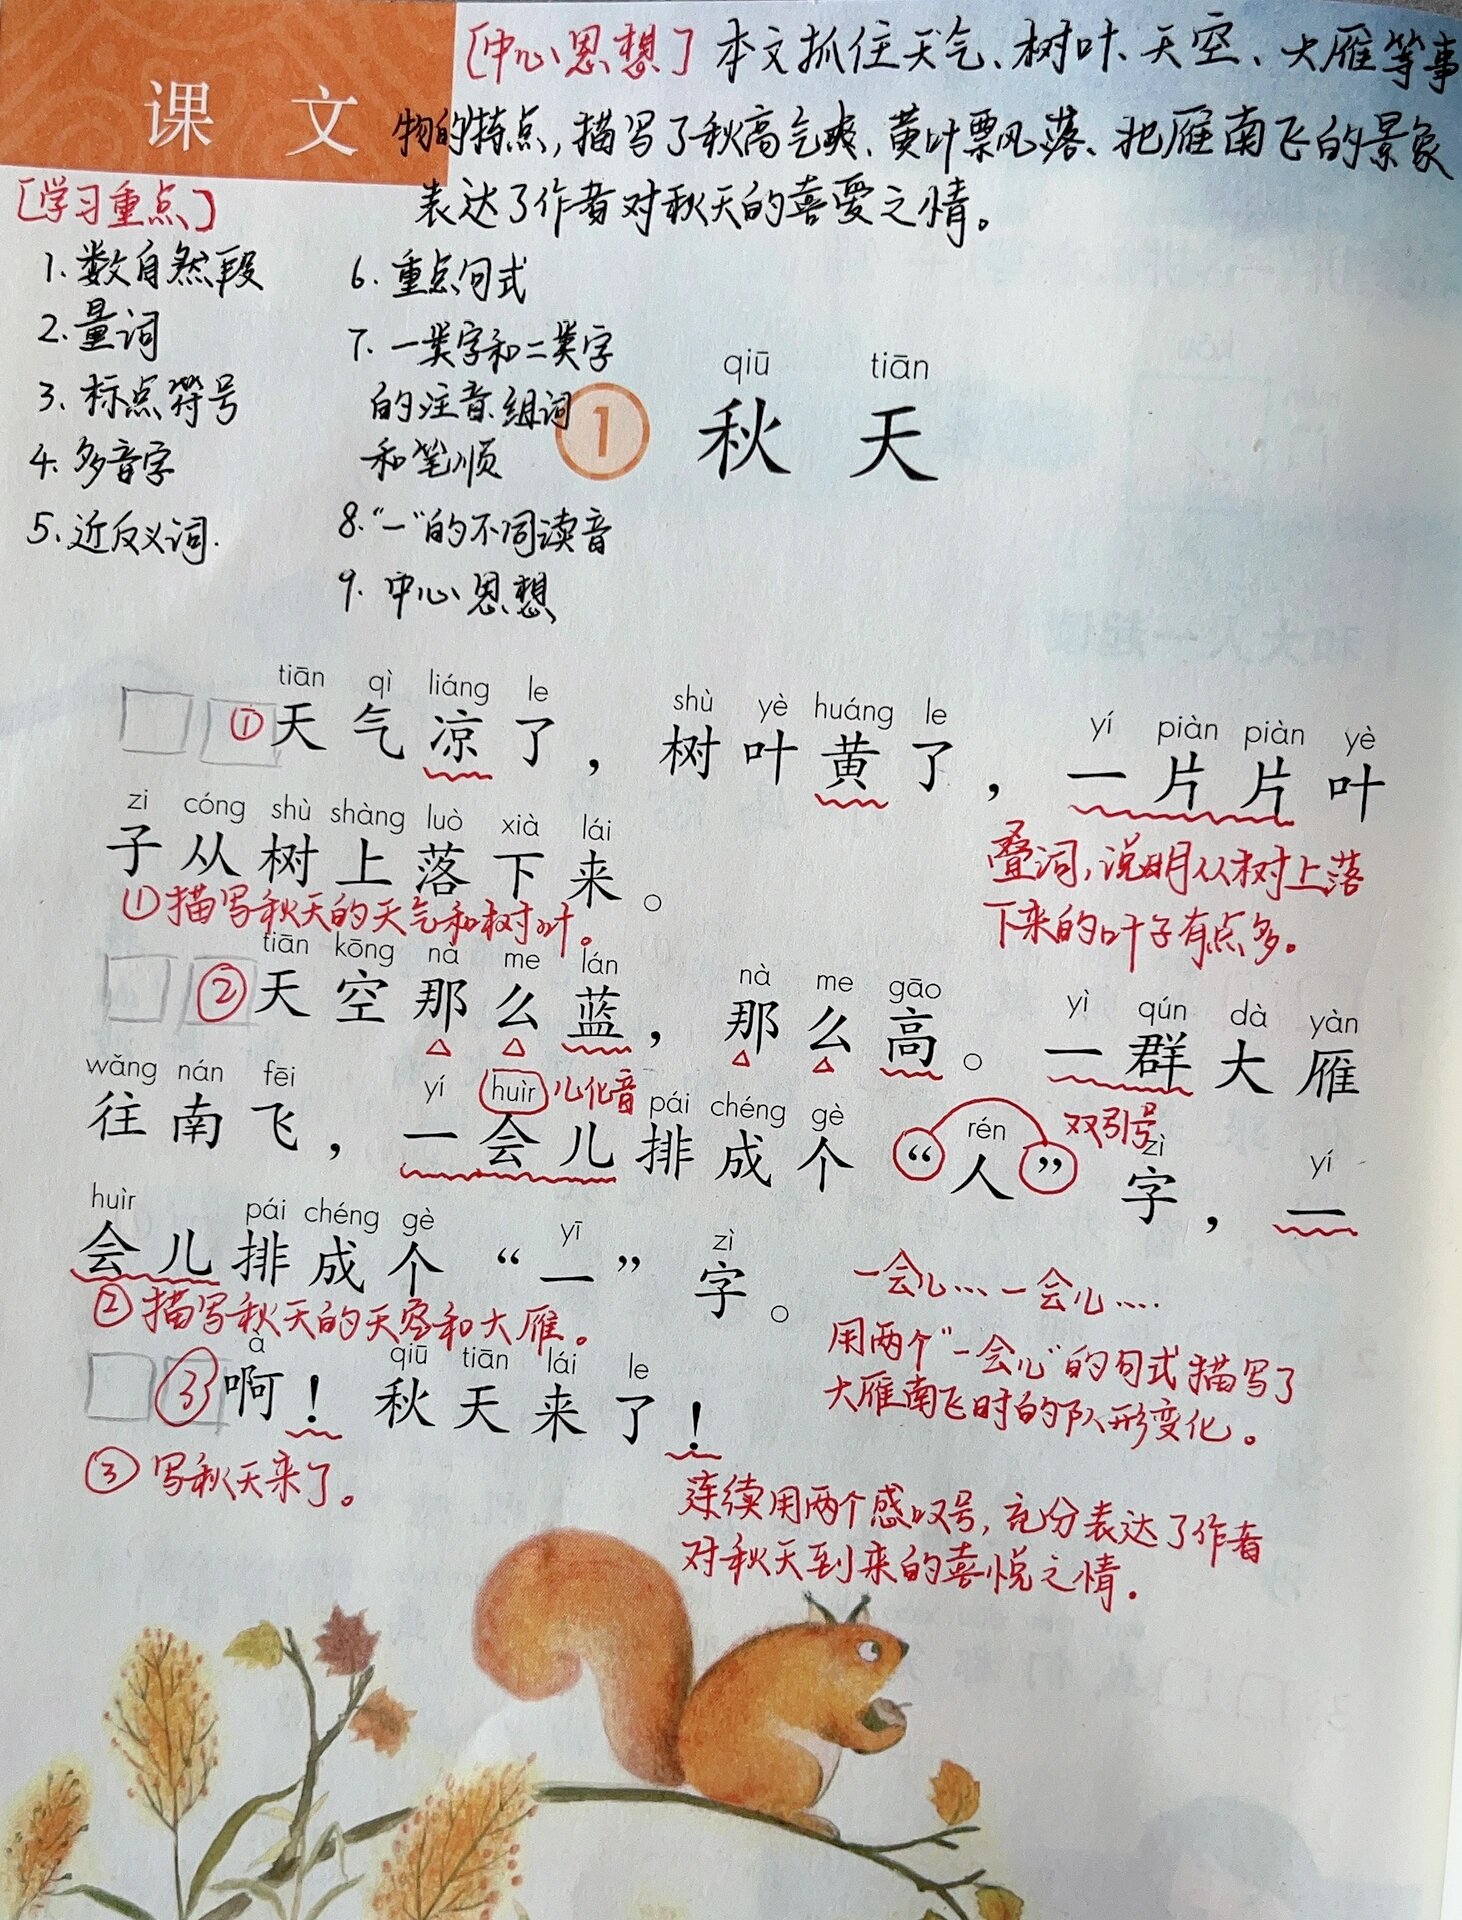 课 文
[中心思想] 本文抓住天气、树叶、天空、大雁等事
物的特点，描写了秋高气爽、黄叶飘落、北雁南飞的景象
表达了作者对秋天的喜爱之情。
[学习重点]
1. 数自然段
2. 量词
3. 标点符号
4. 多音字
5. 近反义词.
6. 重点句式
7. 一类字和二类字
的注音组词
和笔顺
8. “一”的不同读音
9. 中心思想
qiū tiān
1 秋 天
tiān qì liáng le shù yè huáng le yí piàn piàn yè
①天气凉了，树叶黄了，一片片叶
zi cóng shù shàng luò xià lái
子从树上落下来。
叠词，说明从树上落
下来的叶子有点多。
①描写秋天的天气和树叶。
tiān kōng nà me lán nà me gāo yì qún dà yàn
②天空那么蓝，那么高。一群大雁
wǎng nán fēi yí huìr 儿化音 pái chéng gè rén 双引号 zì yí
往南飞，一会儿排成个“人”字，一
huìr pái chéng gè yī zì
会儿排成个“一”字。
②描写秋天的天空和大雁。
一会儿…一会儿….
用两个“一会儿”的句式描写了
大雁南飞时的队形变化。
à qiū tiān lái le
③啊！秋天来了！
③ 写秋天来了。
连续用两个感叹号，充分表达了作者
对秋天到来的喜悦之情.